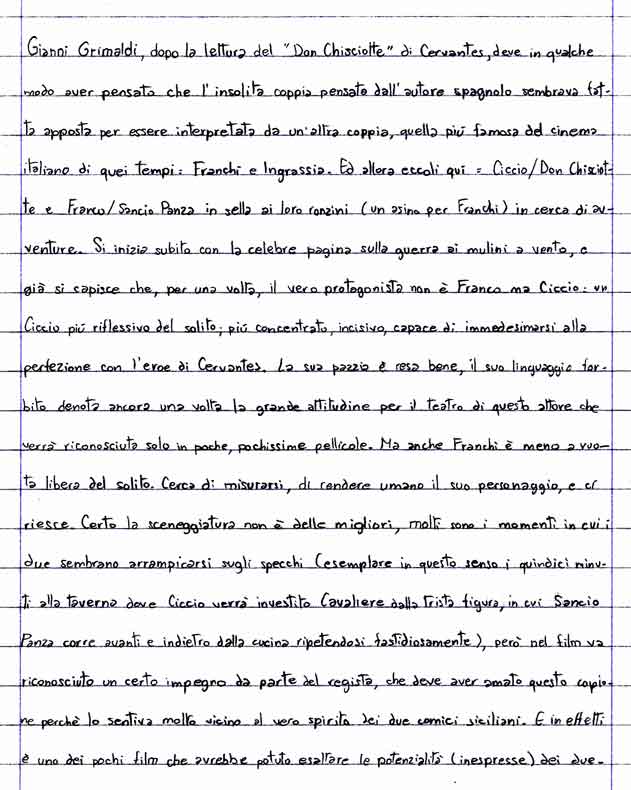 Gianni Grimaldi, dopo la lettura del "Don Chisciotte" di Cervantes, deve in qualche
modo aver pensato che l'insolita coppia pensata dall'autore spagnolo sembrava fat-
ta apposta per essere interpretata da un'altra coppia, quella più famosa del cinema
italiano di quei tempi: Franchi e Ingrassia. Ed allora eccoli qui: Ciccio/Don Chisciot-
te e Franco/Sancio Panza in sella ai loro ronzini (un asino per Franchi) in cerca di av-
venture. Si inizia subito con la celebre pagina sulla guerra ai mulini a vento, e
già si capisce che, per una volta, il vero protagonista non è Franco ma Ciccio: un
Ciccio più riflessivo del solito; più concentrato, incisivo, capace di immedesimarsi alla
perfezione con l'eroe di Cervantes. La sua pazzia è resa bene, il suo linguaggio for-
bito denota ancora una volta la grande attitudine per il teatro di questo attore che
verrà riconosciuta solo in poche, pochissime pellicole. Ma anche Franchi è meno a ruo-
ta libera del solito. Cerca di misurarsi, di rendere umano il suo personaggio, e ci
riesce. Certo la sceneggiatura non è delle migliori, molti sono i momenti in cui i
due sembrano arrampicarsi sugli specchi (esemplare in questo senso i quindici minu-
ti alla taverna dove Ciccio verrà investito Cavaliere dalla Trista figura, in cui Sancio
Panza corre avanti e indietro dalla cucina ripetendosi fastidiosamente), però nel film va
riconosciuto un certo impegno da parte del regista, che deve aver amato questo copio-
ne perchè lo sentiva molto vicino al vero spirito dei due comici siciliani. E in effetti
è uno dei pochi film che avrebbe potuto esaltare le potenzialità (inespresse) dei due.